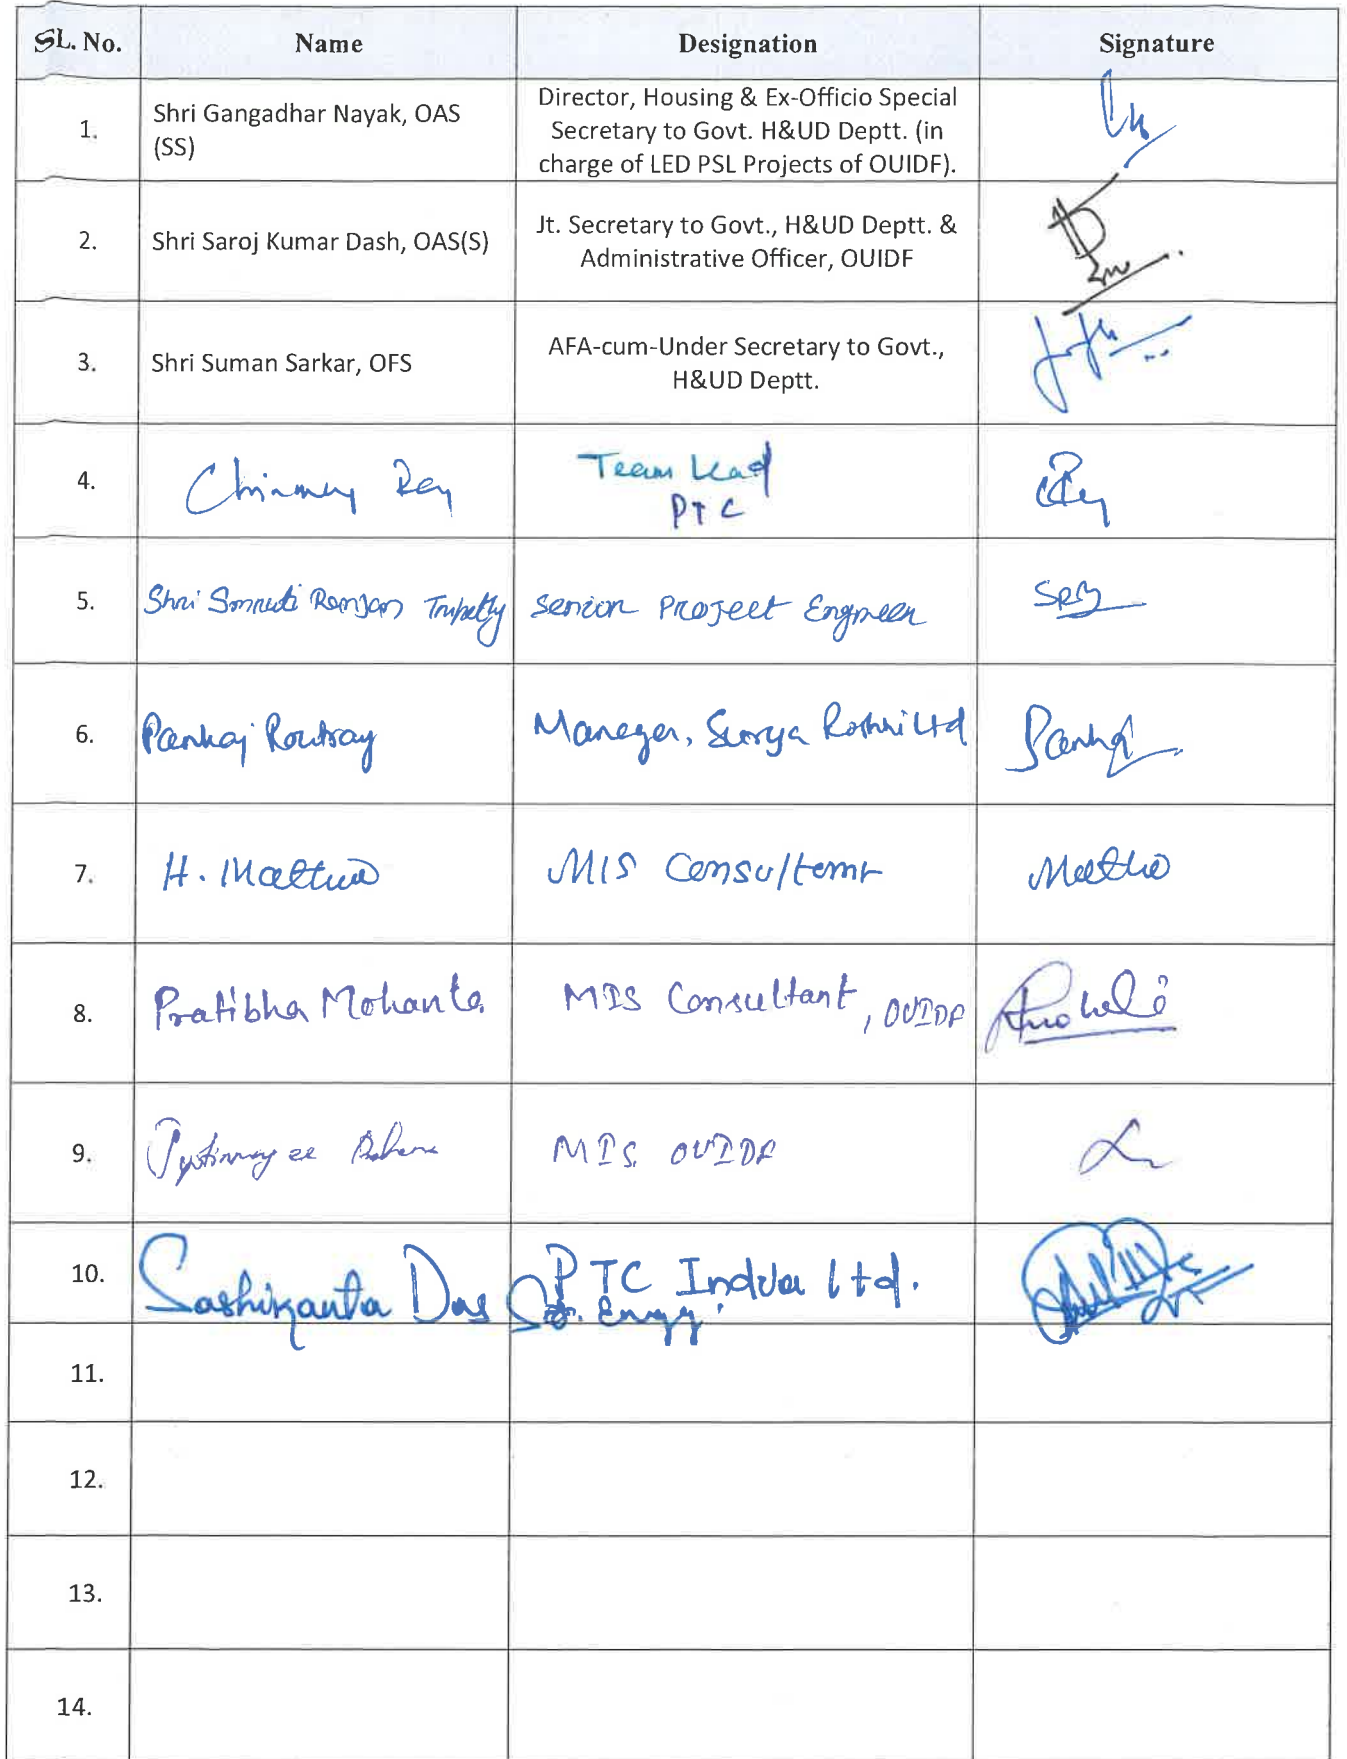 SL. No. Name Designation Signature
1. Shri Gangadhar Nayak, OAS (SS)
Director, Housing & Ex-Officio Special
Secretary to Govt. H&UD Deptt. (in
charge of LED PSL Projects of OUIDF).
2. Shri Saroj Kumar Dash, OAS(S)
Jt. Secretary to Govt., H&UD Deptt. &
Administrative Officer, OUIDF
3. Shri Suman Sarkar, OFS
AFA-cum-Under Secretary to Govt.,
H&UD Deptt.
4. Chinmay Ray
Team Lead
PTC
5. Shri Smruti Ranjan Tripathy Senior Project Engineer
6. Pankaj Routray Manager, Surya Roshni Ltd Pankaj
7. H. MIS Consultant
8. Pratibha Mohanta MIS Consultant, OUIDF
9. Jyotirmayee Behera MIS OUIDF
10. Sashikanta Das PTC India Ltd.
Sr. Engg.
11.
12.
13.
14.